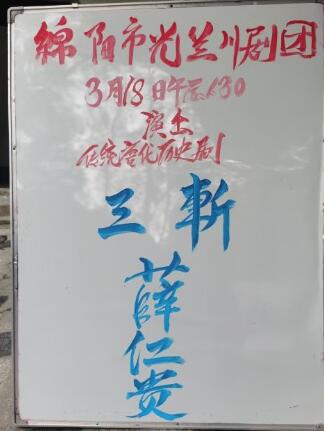 綿阳市光兰川剧团
3月18日午后1:30
演出
传统唐代历史剧
三斬
薛仁贵